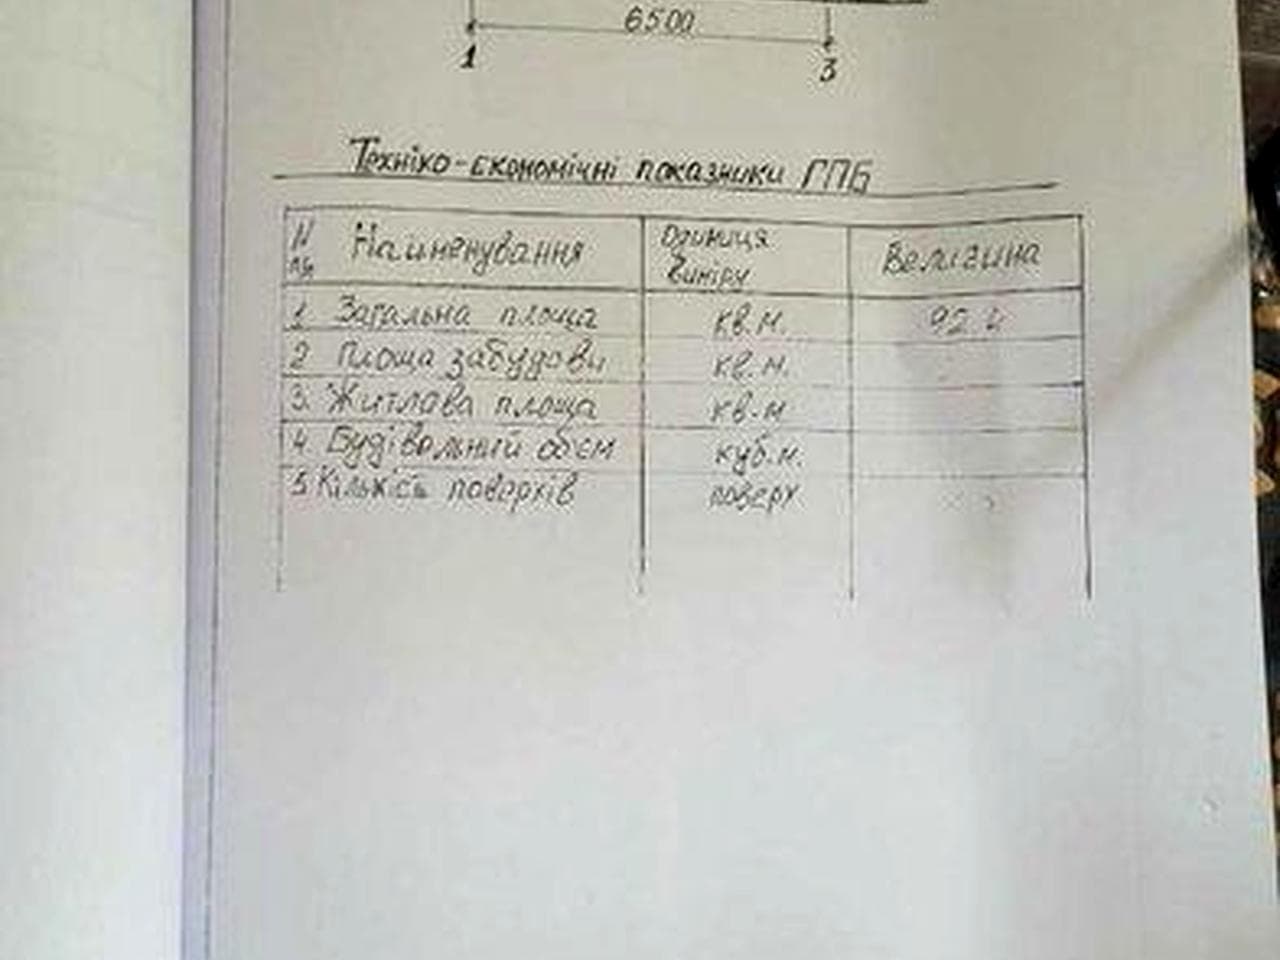 6500
1 3
Техніко-економічні показники ГПБ
N Найменування Одиниця виміру Величина
пп
1 Загальна площа кв.м. 92.4
2 Площа забудови кв.м.
3. Житлова площа кв.м
4. Будівельний об'єм куб.м.
5. Кількість поверхів поверх